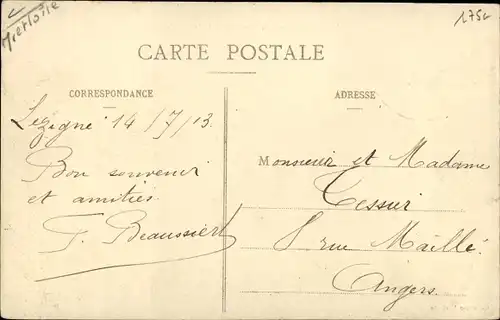 1752
CARTE POSTALE
CORRESPONDANCE
ADRESSE
Lezigné 14/7/13
Bon souvenir
et amitiés
F. Beaussiert
Monsieur et Madame
Tessier
8 rue Maillé
Angers